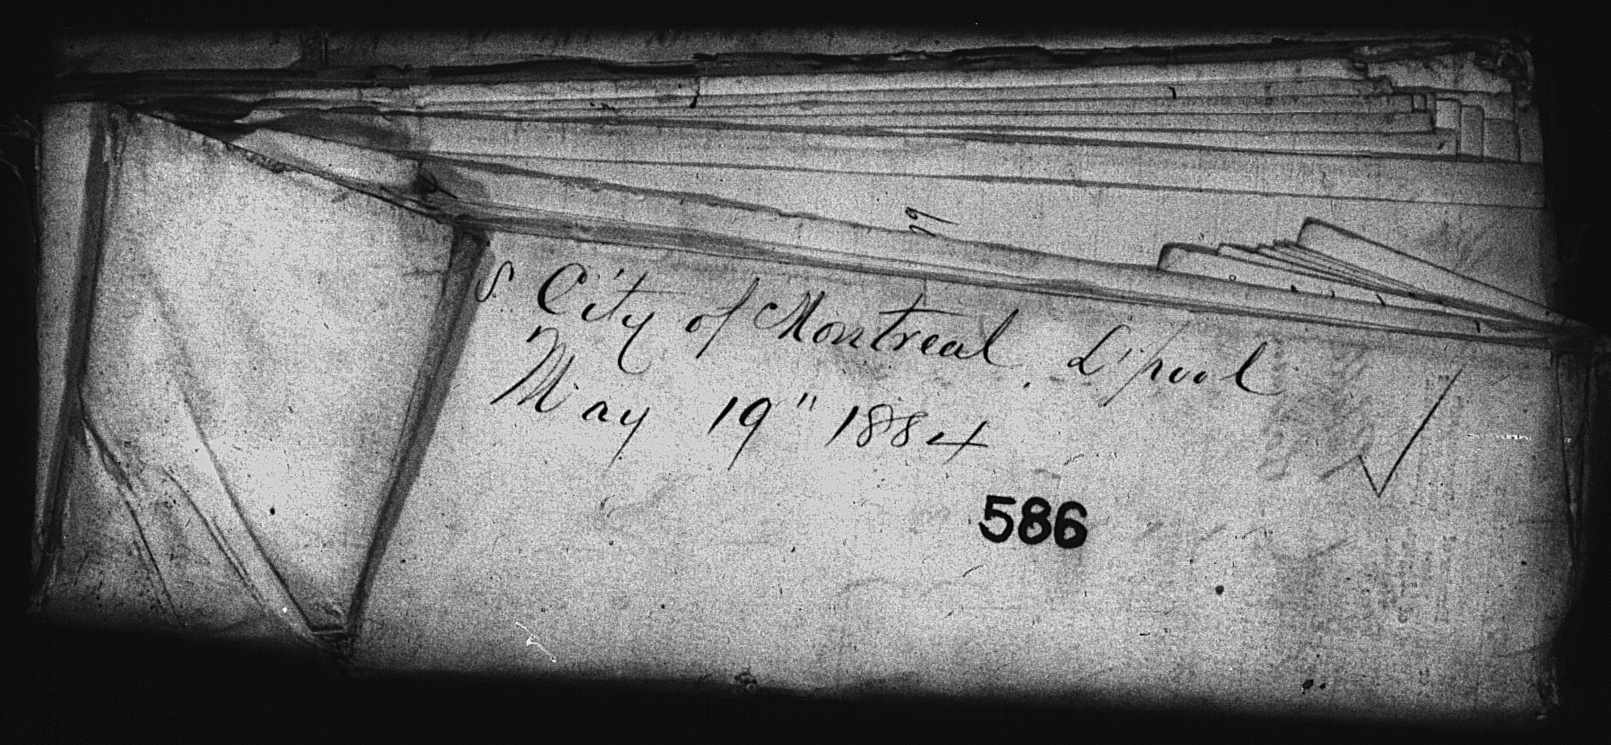 S. City of Montreal, L'pool
May 19" 1884
586